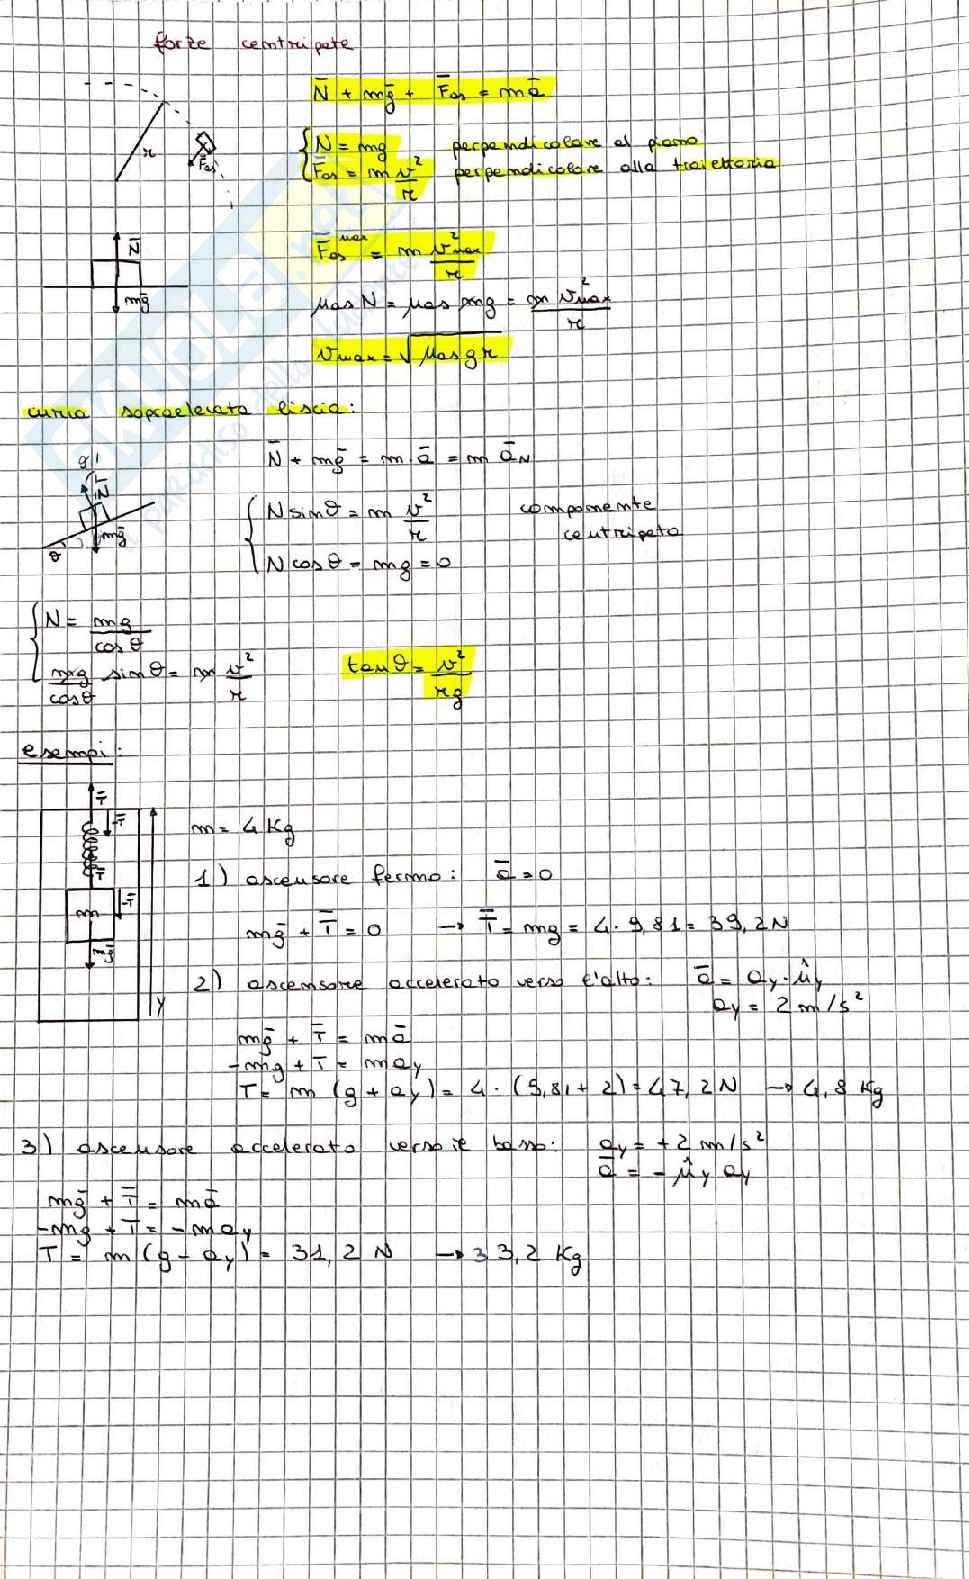 forze centripete
N̄ + mḡ + F̄as = mā
r
F̄as
{ N = mg perpendicolare al piano
F̄as = m v²/r perpendicolare alla traiettoria
N̄
mḡ
F̄as^max = m v²max/r
μas N = μas mg = m v²max/r
vmax = √μas g r
curva sopraelevata liscia:
N̄ + mḡ = m ā = m āN
y
N̄
mḡ
θ
{ N sinθ = m v²/r componente centripeta
N cosθ - mg = 0
{ N = mg/cosθ
mg/cosθ sinθ = m v²/r tanθ = v²/rg
esempi:
T̄
T̄
T̄
T̄
m
mḡ
y
m = 4 Kg
1) ascensore fermo: ā = 0
mḡ + T̄ = 0 → T̄ = mg = 4 · 9,81 = 39,2 N
2) ascensore accelerato verso l'alto: ā = ay · ûy
ay = 2 m/s²
mḡ + T̄ = mā
-mg + T = may
T = m (g + ay) = 4 · (9,81 + 2) = 47,2 N → 4,8 Kg
3) ascensore accelerato verso il basso: ay = +2 m/s²
ā = - ûy ay
mḡ + T̄ = mā
-mg + T = - may
T = m (g - ay) = 31,2 N → 33,2 Kg